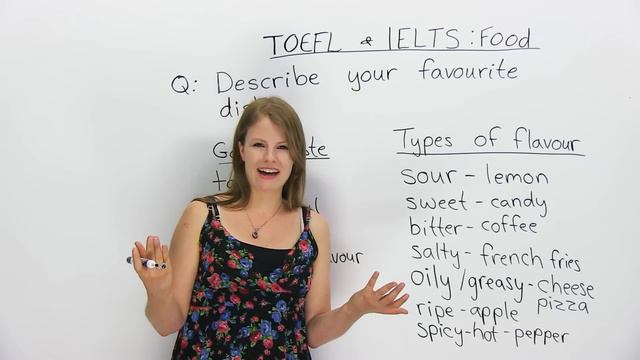 TOEFL & IELTS: Food
Q: Describe your favourite
Types of flavour
sour - lemon
sweet - candy
bitter - coffee
salty - french fries
oily/greasy - cheese
pizza
ripe - apple
spicy - hot - pepper